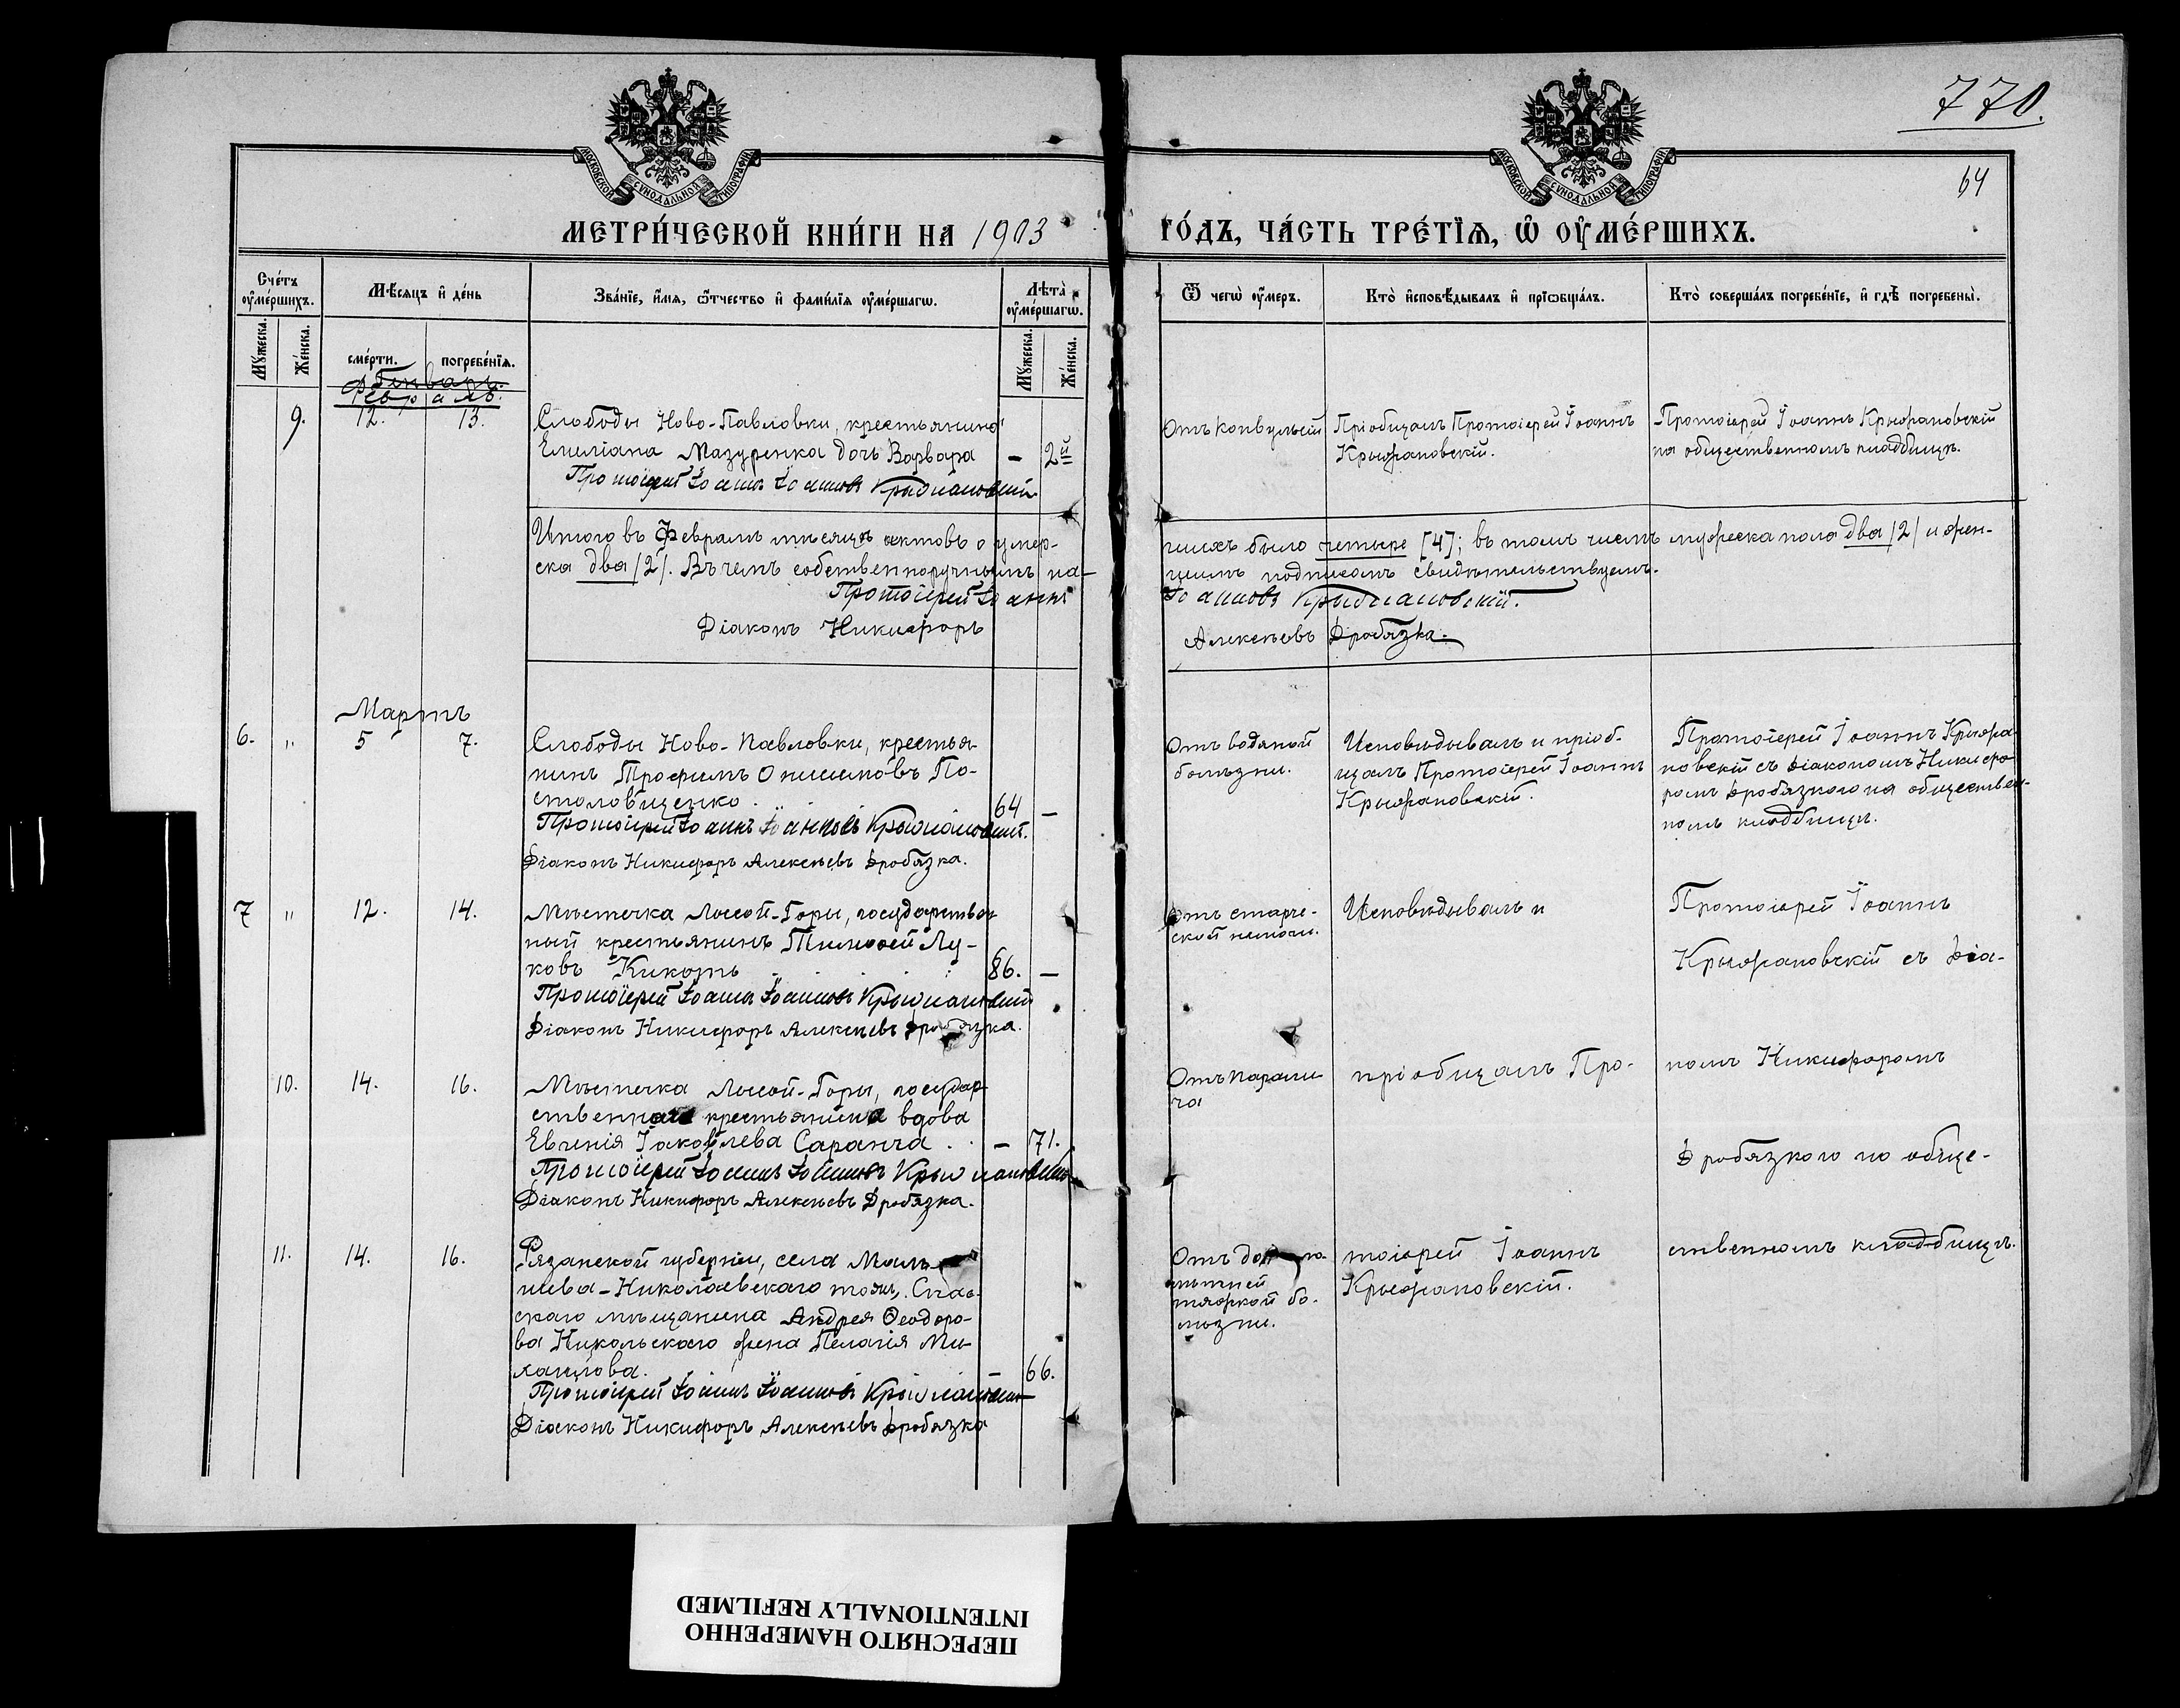 770.
64
МОСКОВСКОЙ СѴНОДАЛЬНОЙ ТИПОГРАФІИ
МОСКОВСКОЙ СѴНОДАЛЬНОЙ ТИПОГРАФІИ
МЕТРИ́ЧЕСКОЙ КНИ́ГИ НА 1903 ГО́ДЪ, ЧА́СТЬ ТРЕ́ТЇѦ, Ѡ҆ ОУ҆МЕ́РШИХЪ.
Сче́тъ оу҆ме́ршихъ.
Мꙋ́жеска.
Же́нска.
Мѣ́сяцъ и҆ де́нь
сме́рти.
погребе́нїѧ.
Зва́нїе, и҆́мѧ, ѻ҆́тчество и҆ фами́лїѧ оу҆ме́ршагѡ.
Лѣ́та оу҆ме́ршагѡ.
Мꙋ́жеска.
Же́нска.
Ѿ чегѡ̀ оу҆́меръ.
Кто̀ и҆сповѣ́дывалъ и҆ прїѡбща́лъ.
Кто̀ соверша́лъ погребе́нїе, и҆ гдѣ̀ погребены̀.
Январь.
Февраль.
9.
12.
13.
Слободы Ново-Павловки, крестьянина
Емиліана Мазуренка дочь Варвара
– 2й
Протоіерей Іоаннъ Іоанновъ Крыжановскій
Отъ конвульсій
Пріобщалъ Протоіерей Іоаннъ
Крыжановскій.
Протоіерей Іоаннъ Крыжановскій
на общественномъ кладбищѣ.
Итого въ Февралѣ мѣсяцѣ актовъ о умер-
шихъ было четыре [4]; въ томъ числѣ мужеска пола два /2/ и жен-
ска два /2/. Въ чемъ собственноручнымъ на-
шимъ подписомъ свидѣтельствуемъ.
Протоіерей Іоаннъ
Іоанновъ Крыжановскій.
Діаконъ Никифоръ
Алексѣевъ Дробязка.
Мартъ
6.
"
5
7.
Слободы Ново-Павловки, крестья-
нинъ Трофимъ Онисимовъ По-
столовщенко.
64 –
Протоіерей Іоаннъ Іоанновъ Крыжановскій.
Діаконъ Никифоръ Алексѣевъ Дробязка.
Отъ водяной
болѣзни.
Исповѣдывалъ и пріоб-
щалъ Протоіерей Іоаннъ
Крыжановскій.
Протоіерей Іоаннъ Крыжа-
новскій съ діакономъ Никифо-
ромъ Дробязкою на обществен-
номъ кладбищѣ.
7
"
12.
14.
Мѣстечка Лысой-Горы, государствен-
ный крестьянинъ Тимофей Лу-
ковъ Кикоть
86. –
Протоіерей Іоаннъ Іоанновъ Крыжановскій
Діаконъ Никифоръ Алексѣевъ Дробязка.
Отъ старче-
ской немочи.
Исповѣдывалъ и
Протоіерей Іоаннъ
Крыжановскій съ Діа-
10.
14.
16.
Мѣстечка Лысой-Горы, государ-
ственнаго крестьянина вдова
Евгенія Іаковлева Саранча
– 71.
Протоіерей Іоаннъ Іоанновъ Крыжановскій
Діаконъ Никифоръ Алексѣевъ Дробязка.
Отъ парали-
ча
пріобщалъ Про-
номъ Никифоромъ
Дробязкою на обще-
11.
14.
16.
Рязанской губерніи, села
шева-Николаевскаго тожъ, Спас-
скаго мѣщанина Андрея Ѳеодоро-
ва Никольскаго жена Пелагія Ми-
хаилова.
– 66.
Протоіерей Іоаннъ Іоанновъ Крыжановскій
Діаконъ Никифоръ Алексѣевъ Дробязка
Отъ долго-
лѣтней
тяжкой бо-
лѣзни.
тоіерей Іоаннъ
Крыжановскій.
ственномъ кладбищѣ.
ПЕРЕСНЯТО НАМЕРЕННО
INTENTIONALLY REFILMED